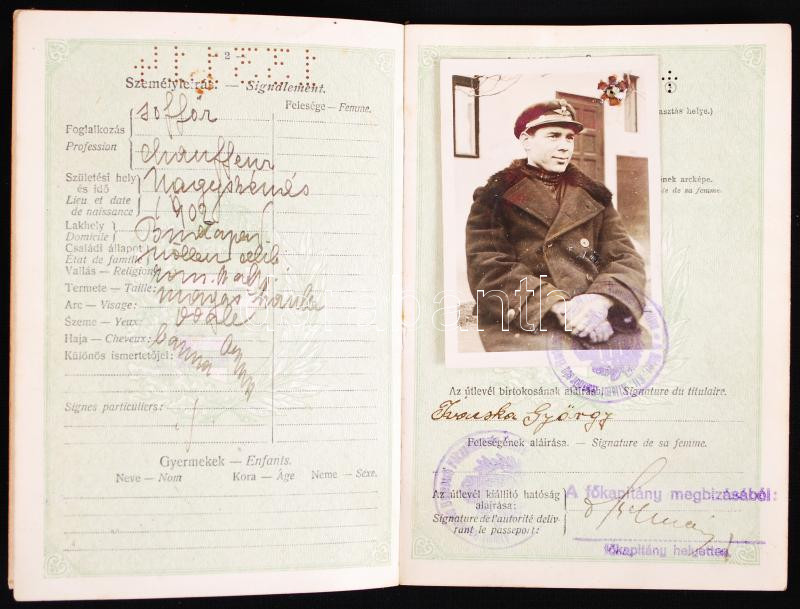 2
Személyleírás: — Signalement.
Felesége — Femme.
soffőr
Foglalkozás
Profession
chauffeur
Születési hely és idő
Lieu et date de naissance
Nagyszénás
1902
Lakhely
Domicile
Budapest
Családi állapot
État de famille
nőtlen célib
Vallás — Religion
rom. kath
Termete — Taille:
magas haute
Arc — Visage:
ovale
Szeme — Yeux:
Haja — Cheveux:
barna
Különös ismertetőjel:
Signes particuliers:
Gyermekek — Enfants.
Neve — Nom
Kora — Âge
Neme — Sexe.
asztás helye.)
ének arcképe.
de sa femme.
Az útlevél birtokosának aláírása. — Signature du titulaire.
Ivacska György
Feleségének aláírása. — Signature de sa femme.
Az útlevél kiállító hatóság aláírása:
Signature de l'autorité délivrant le passeport:
A főkapitány megbízásából:
főkapitány helyettes